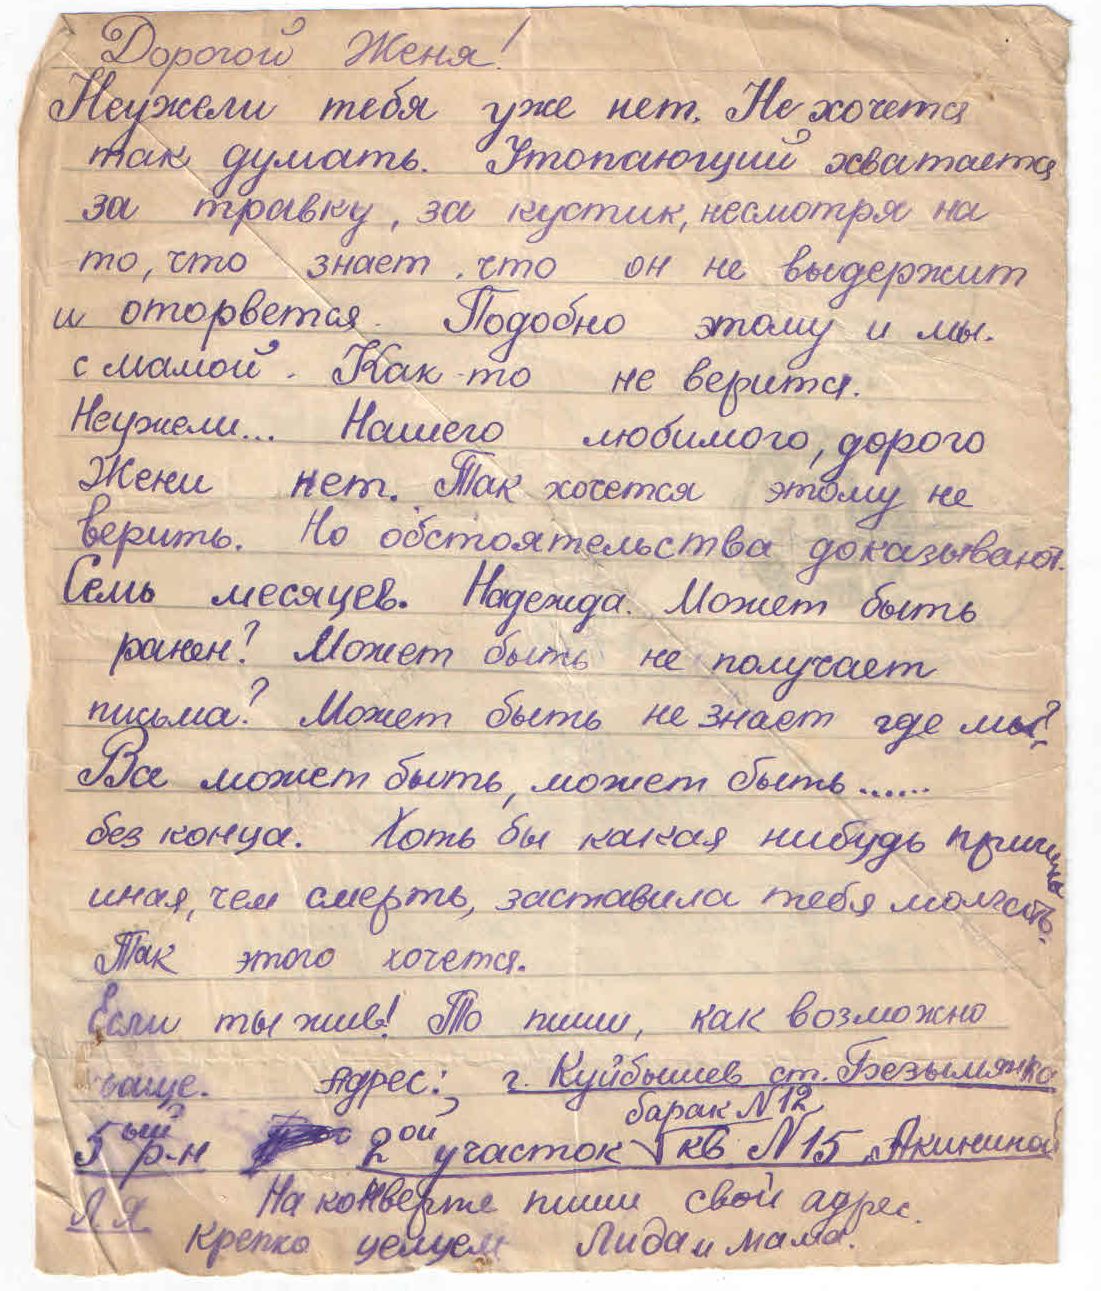 Дорогой Женя!
Неужели тебя уже нет. Не хочется
так думать. Утопающий хватается
за травку, за кустик, несмотря на
то, что знает, что он не выдержит
и оторвется. Подобно этому и мы
с мамой. Как-то не верится.
Неужели... Нашего любимого, дорого
Жени нет. Так хочется этому не
верить. Но обстоятельства доказывают.
Семь месяцев. Надежда. Может быть
ранен? Может быть не получает
письма? Может быть не знает где мы?
Все может быть, может быть......
без конца. Хоть бы какая нибудь причина
иная, чем смерть, заставила тебя молчать.
Так этого хочется.
Если ты жив! То пиши, как возможно
чаще. Адрес: г. Куйбышев ст. Безымянка
барак N 12
5ый р-н 2ой участок кв N 15 Акининой
Л Я На конверте пиши свой адрес.
Крепко целуем Лида и мама.